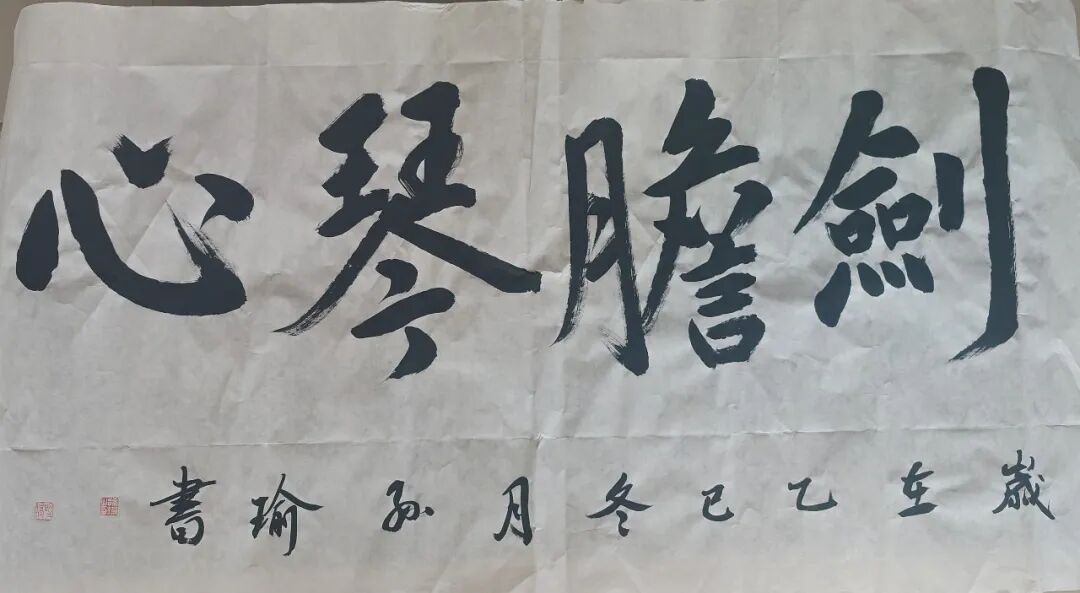 劍膽琴心
歲在乙巳冬月孫瑜書